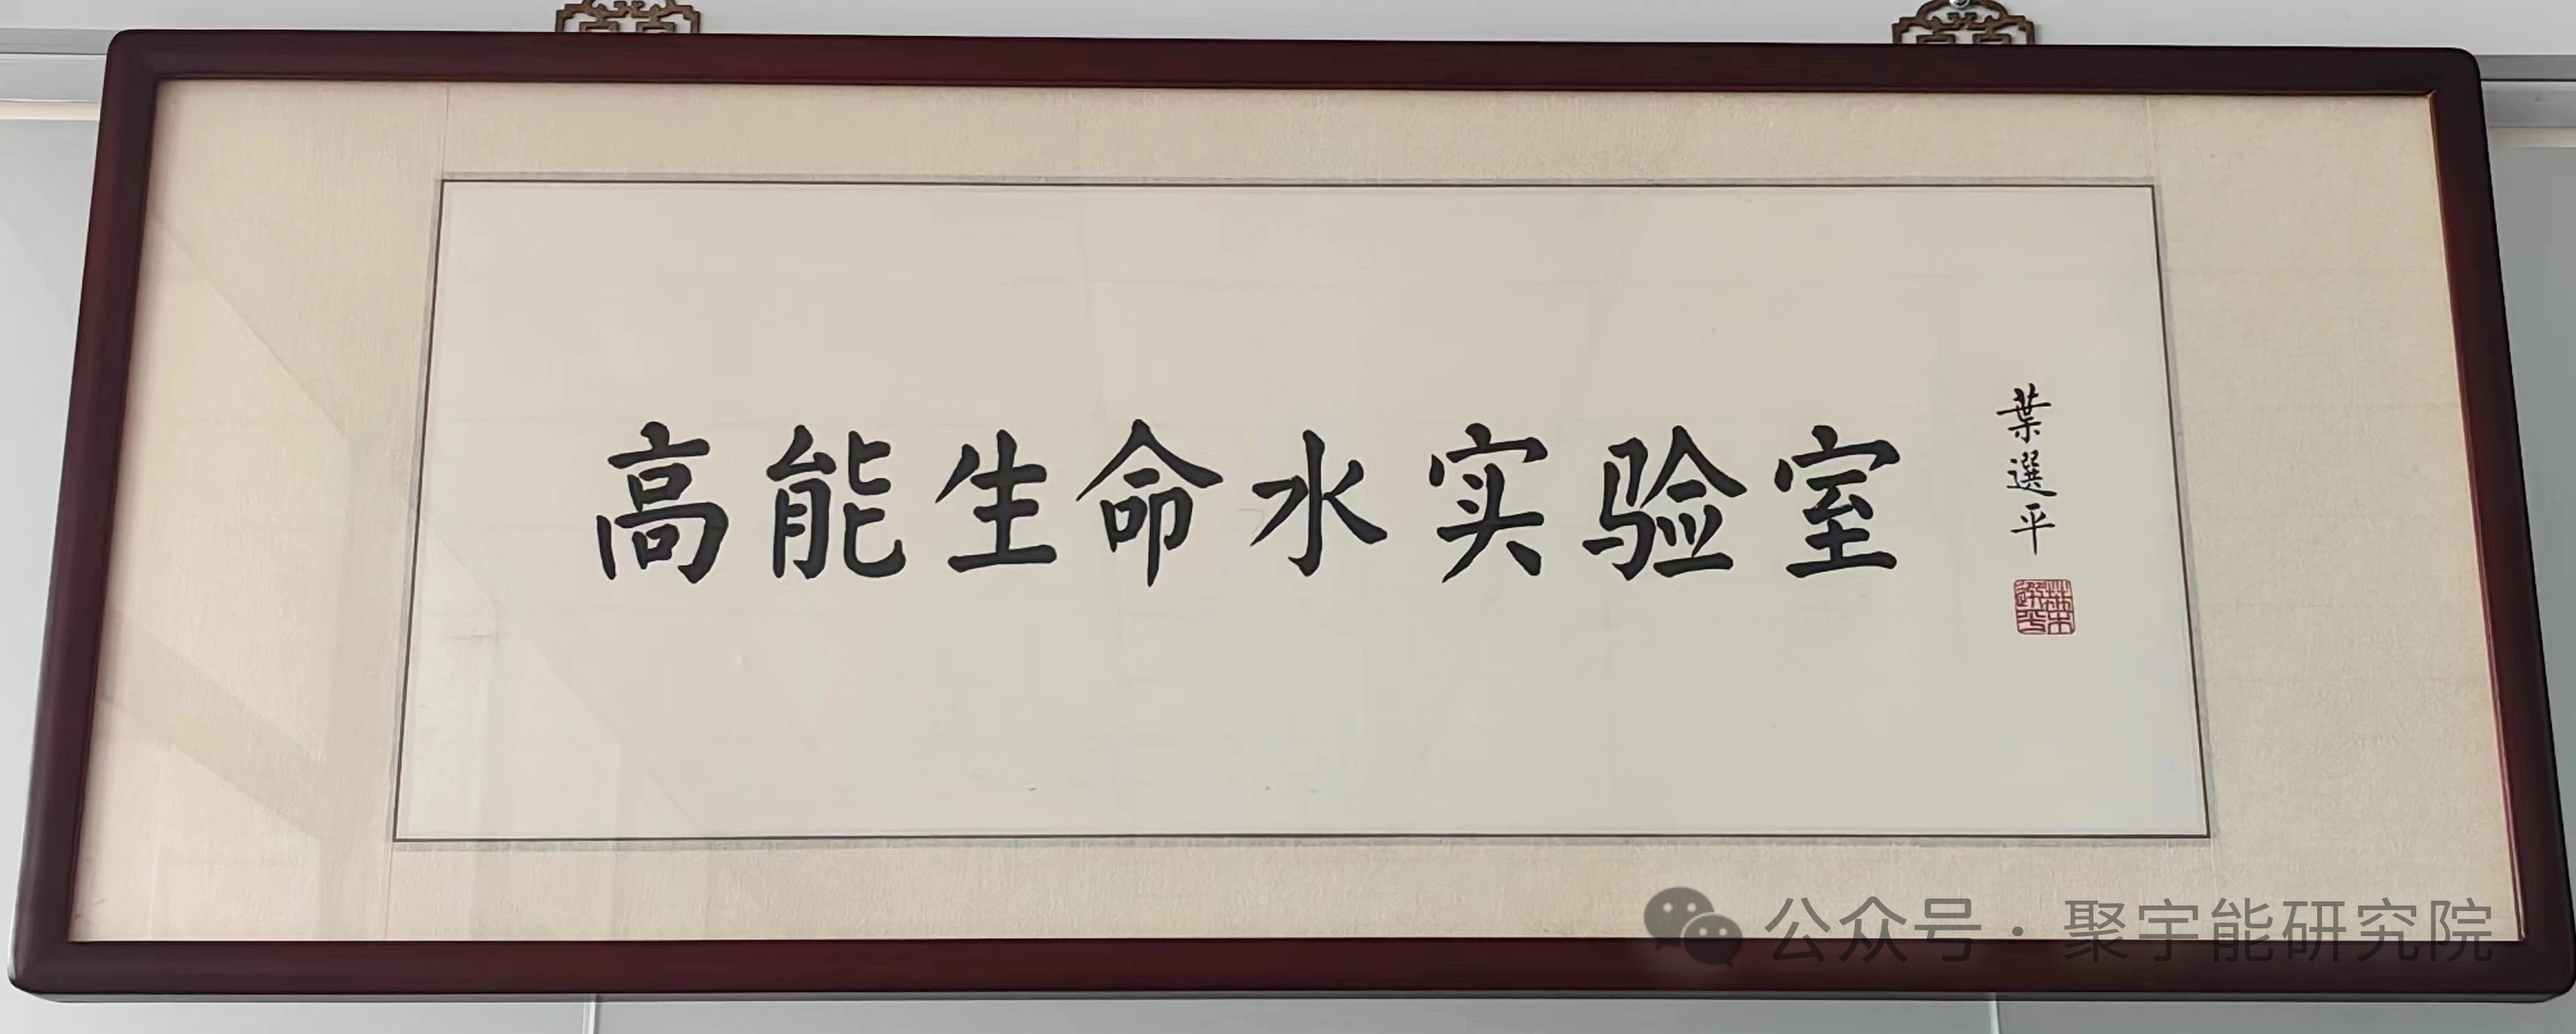 高能生命水实验室
葉選平
葉選平
公众号·聚宇能研究院